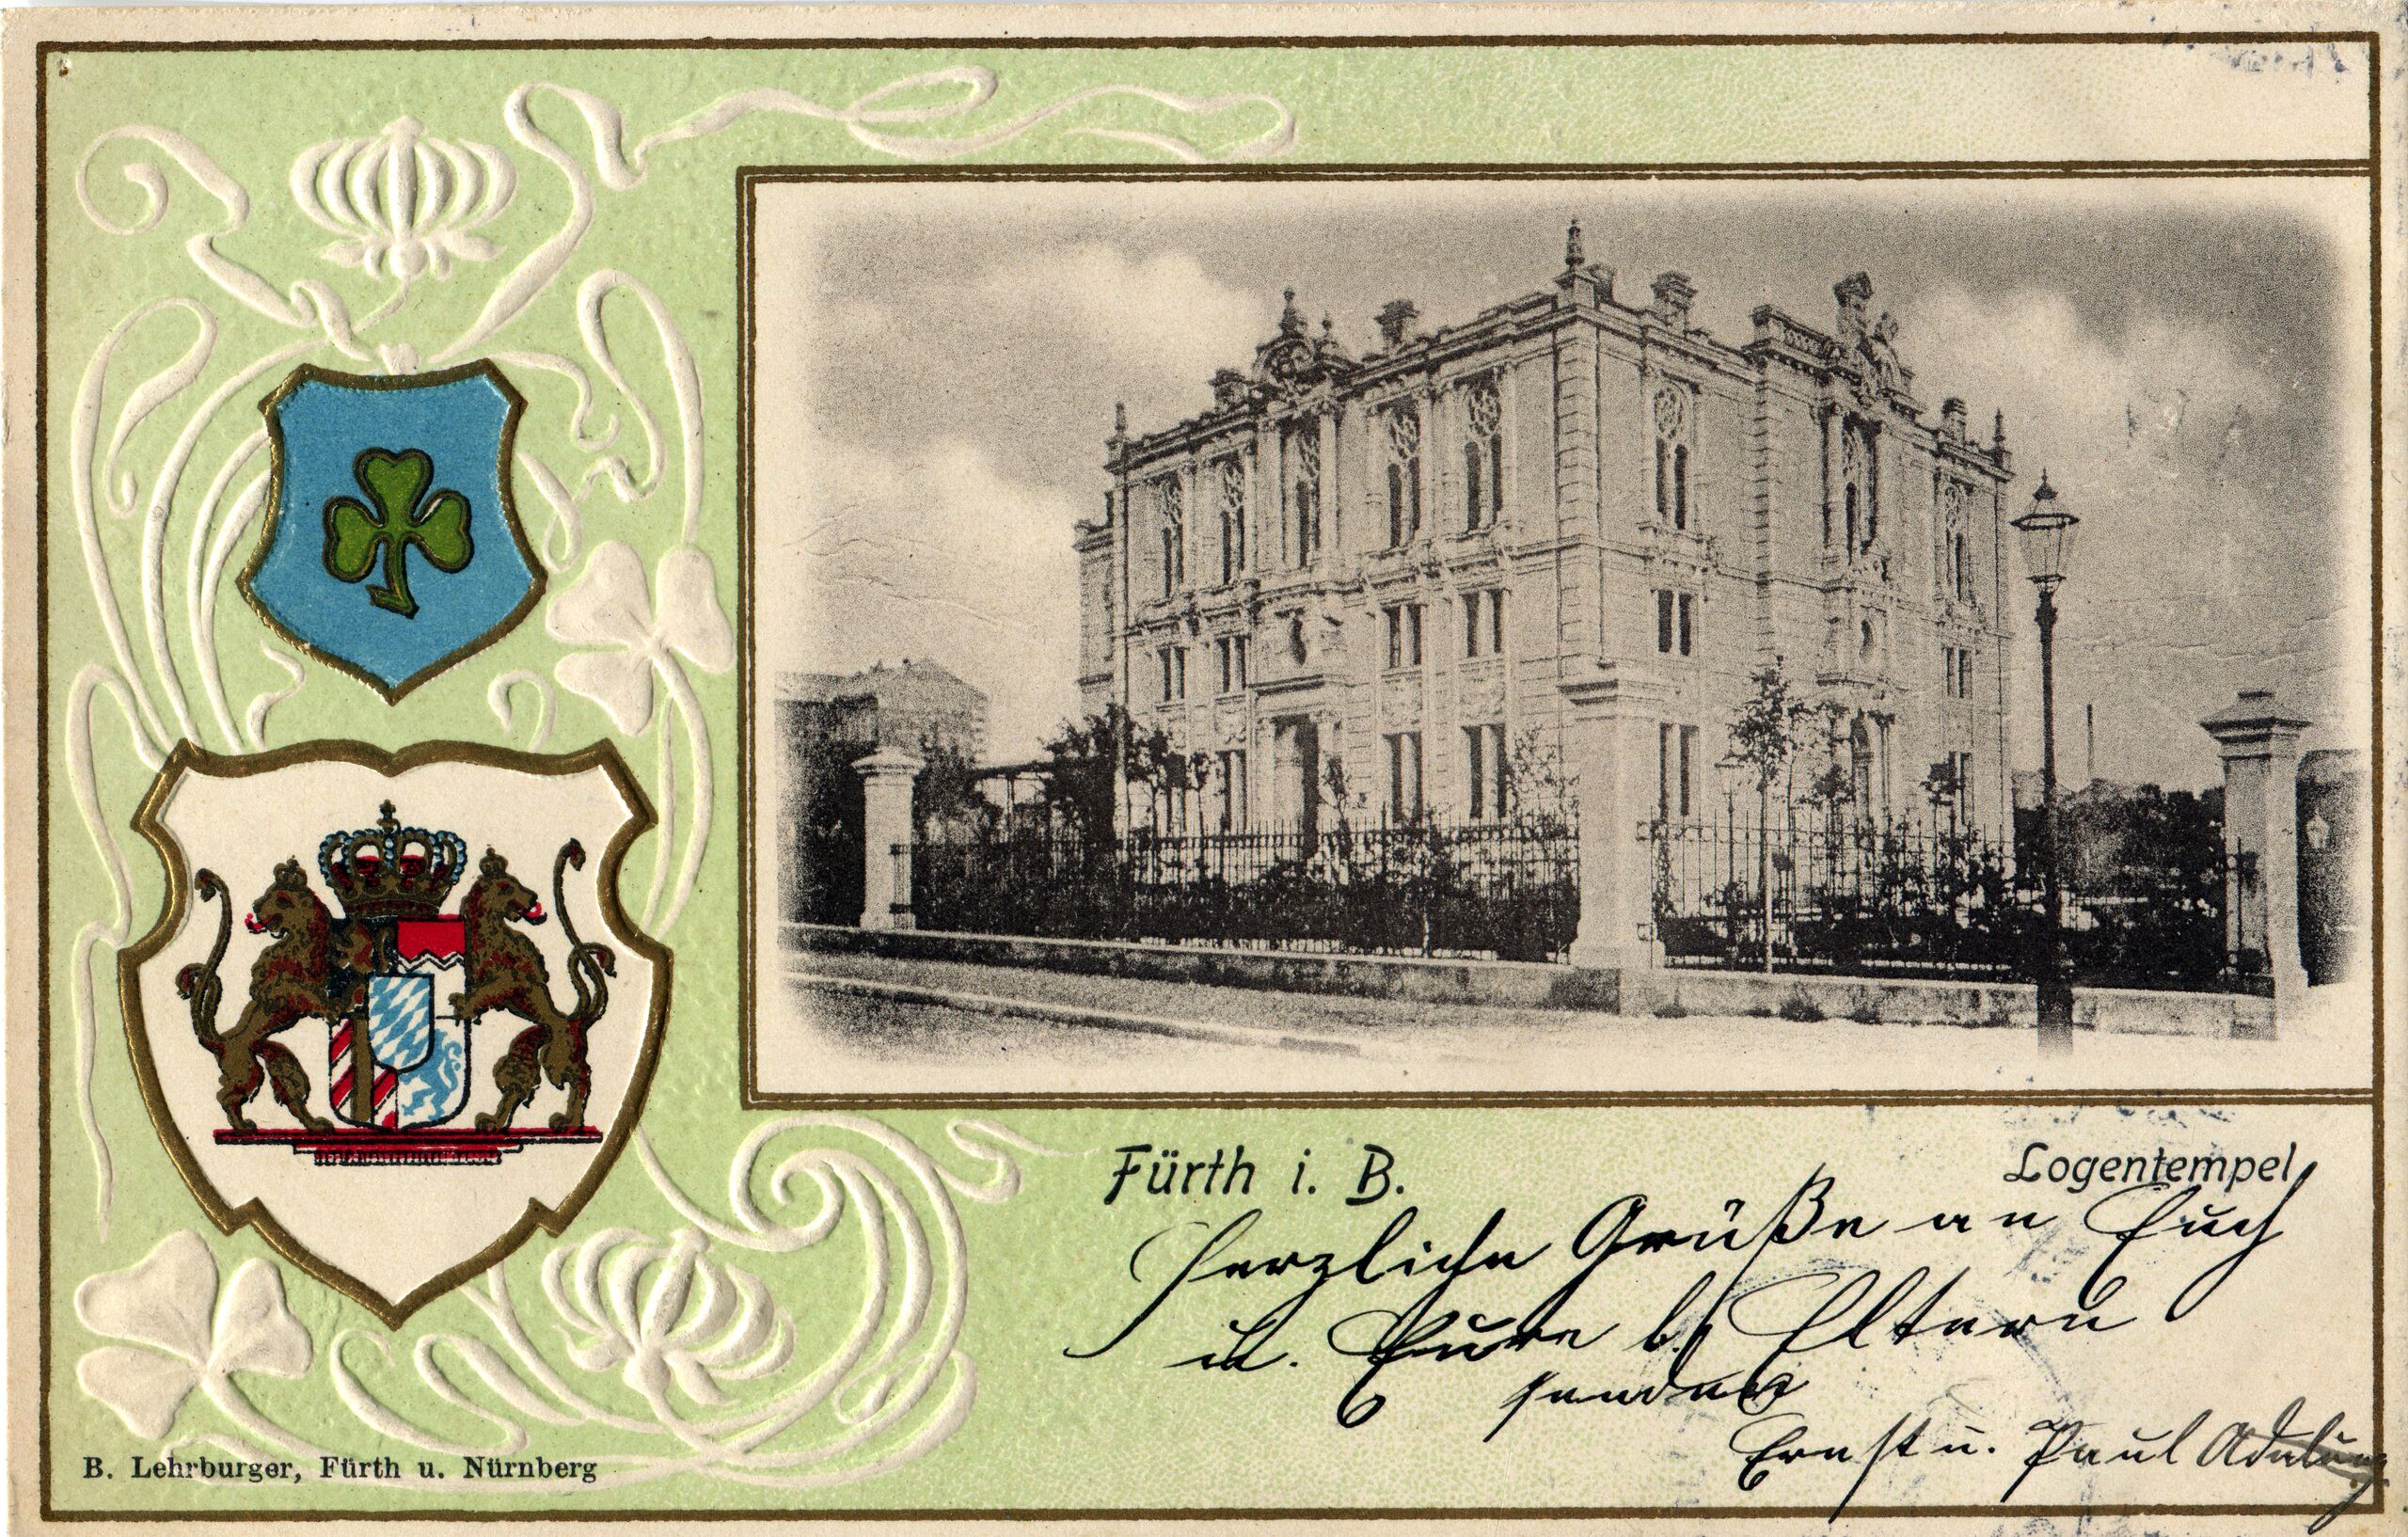 Fürth i. B.
Logentempel
Herzliche Grüße an Euch
u. Eure b. Eltern
sendet
Ernst u. Paul Adelung
B. Lehrburger, Fürth u. Nürnberg